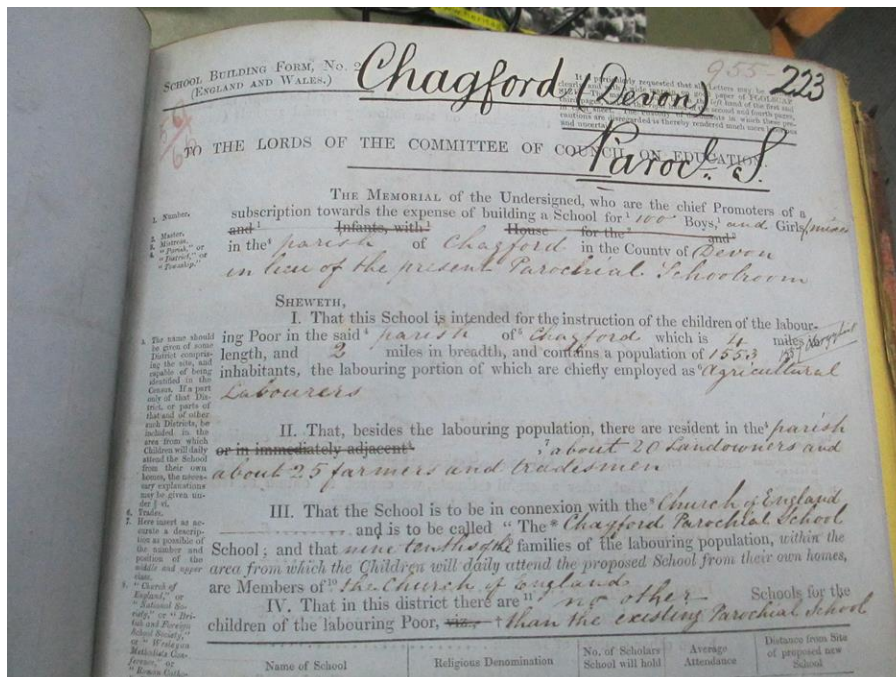 SCHOOL BUILDING FORM, No. 2
(ENGLAND AND WALES.)
Chagford (Devon)
955- 223
Paroc!. S.
TO THE LORDS OF THE COMMITTEE OF COUNCIL ON EDUCATION.
THE MEMORIAL of the Undersigned, who are the chief Promoters of a
subscription towards the expense of building a School for ¹ 100 Boys,¹ and Girls mixed
and ¹ Infants, with ² House for the ³ and ³
in the⁴ parish of Chagford in the County of Devon
in lieu of the present Parochial Schoolroom
SHEWETH,
I. That this School is intended for the instruction of the children of the labour-
ing Poor in the said ⁴ parish of ⁵ Chagford which is 4 miles in
length, and 2 miles in breadth, and contains a population of 1553
inhabitants, the labouring portion of which are chiefly employed as ⁶ Agricultural
Labourers
II. That, besides the labouring population, there are resident in the⁴ parish
or in immediately adjacent⁴ ;⁷ about 20 Landowners and
about 25 farmers and tradesmen
III. That the School is to be in connexion with the⁸ Church of England
and is to be called "The⁹ Chagford Parochial School
School; and that nine tenths of the families of the labouring population, within the
area from which the Children will daily attend the proposed School from their own homes,
are Members of¹⁰ the Church of England
IV. That in this district there are ¹¹ no other Schools for the
children of the labouring Poor, viz., † than the existing Parochial School
Name of School
Religious Denomination
No. of Scholars
School will hold
Average
Attendance
Distance from Site
of proposed new
School
1. Number.
2. Master.
3. Mistress.
4. "Parish," or
"District," or
"Township."
5. The name should
be given of some
District compris-
ing the site, and
capable of being
identified in the
Census. If a part
only of that Dis-
trict, or parts of
that and of other
such Districts, be
included in the
area from which
Children will daily
attend the School
from their own
homes, the neces-
sary explanations
may be given un-
der § vi.
6. Trades.
7. Here insert as ac-
curate a descrip-
tion as possible of
the number and
position of the
middle and upper
class.
8. "Church of
England," or
"National So-
ciety," or "Bri-
tish and Foreign
School Society,"
or "Wesleyan
Methodist Con-
ference," or
"Roman Catho-